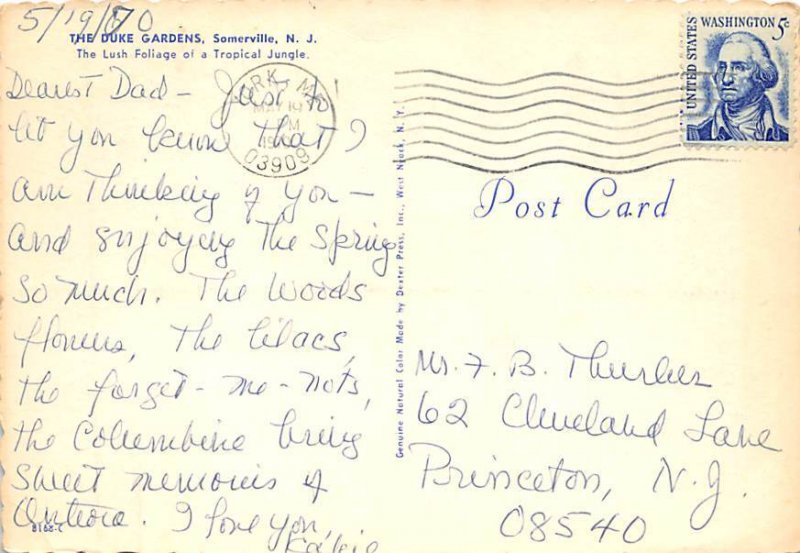 5/19/70
THE DUKE GARDENS, Somerville, N. J.
The Lush Foliage of a Tropical Jungle.
Dearest Dad – Just to
let you know that I
am thinking of you –
and enjoying the Spring
so much. The woods
flowers, the lilacs,
the forget-me-nots,
the Columbine bring
sweet memories of
I love you,
8168-C
YORK, ME
MAY 19
PM
03909
Genuine Natural Color Made by Dexter Press, Inc., West Nyack, N. Y.
UNITED STATES
WASHINGTON 5c
Post Card
Mr. F. B. Thurber
62 Cleveland Lane
Princeton, N.J.
08540